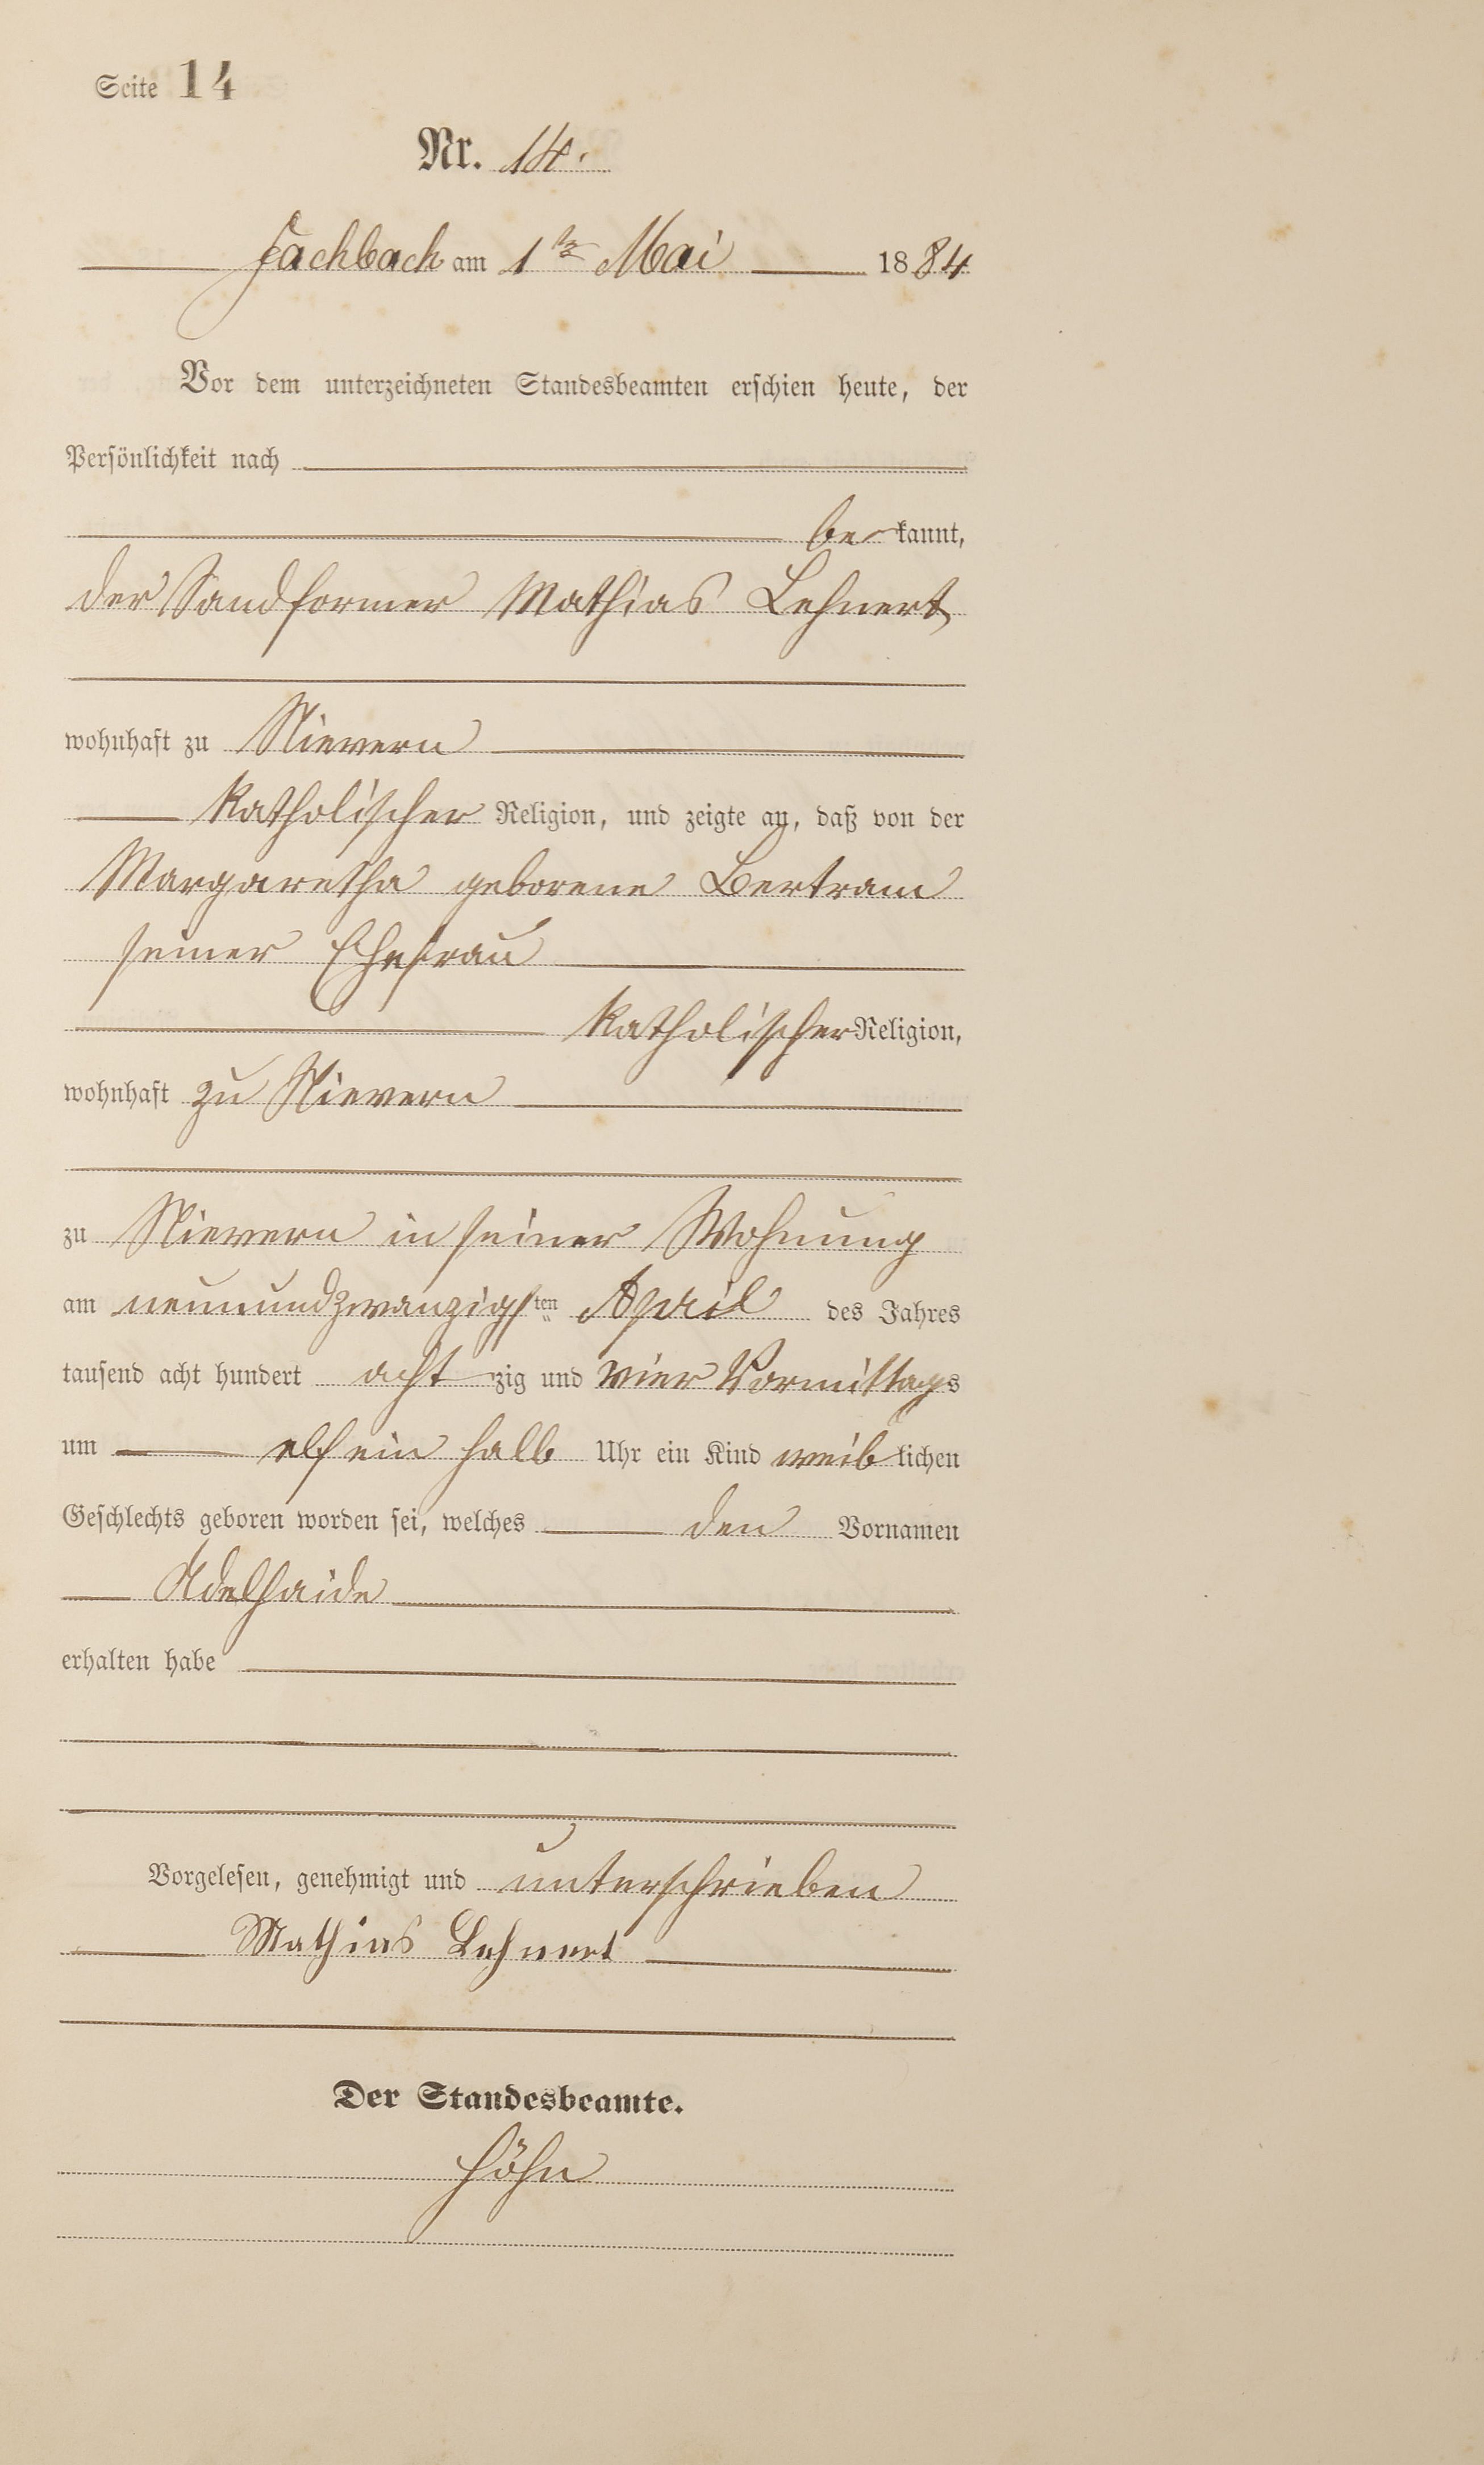 Seite 14
Nr. 14.
Fachbach am 1ten Mai 1884
Vor dem unterzeichneten Standesbeamten erschien heute, der
Persönlichkeit nach
bekannt,
der Sandformer Mathias Lehnert
wohnhaft zu Nievern
Katholischer Religion, und zeigte an, daß von der
Margaretha geborene Bertram
seiner Ehefrau
Katholischer Religion,
wohnhaft zu Nievern
zu Nievern in seiner Wohnung
am neunundzwanzigsten April des Jahres
tausend acht hundert achtzig und vier Vormittags
um elf ein halb Uhr ein Kind weiblichen
Geschlechts geboren worden sei, welches den Vornamen
Adelhaide
erhalten habe
Vorgelesen, genehmigt und unterschrieben
Mathias Lehnert
Der Standesbeamte.
Höhn